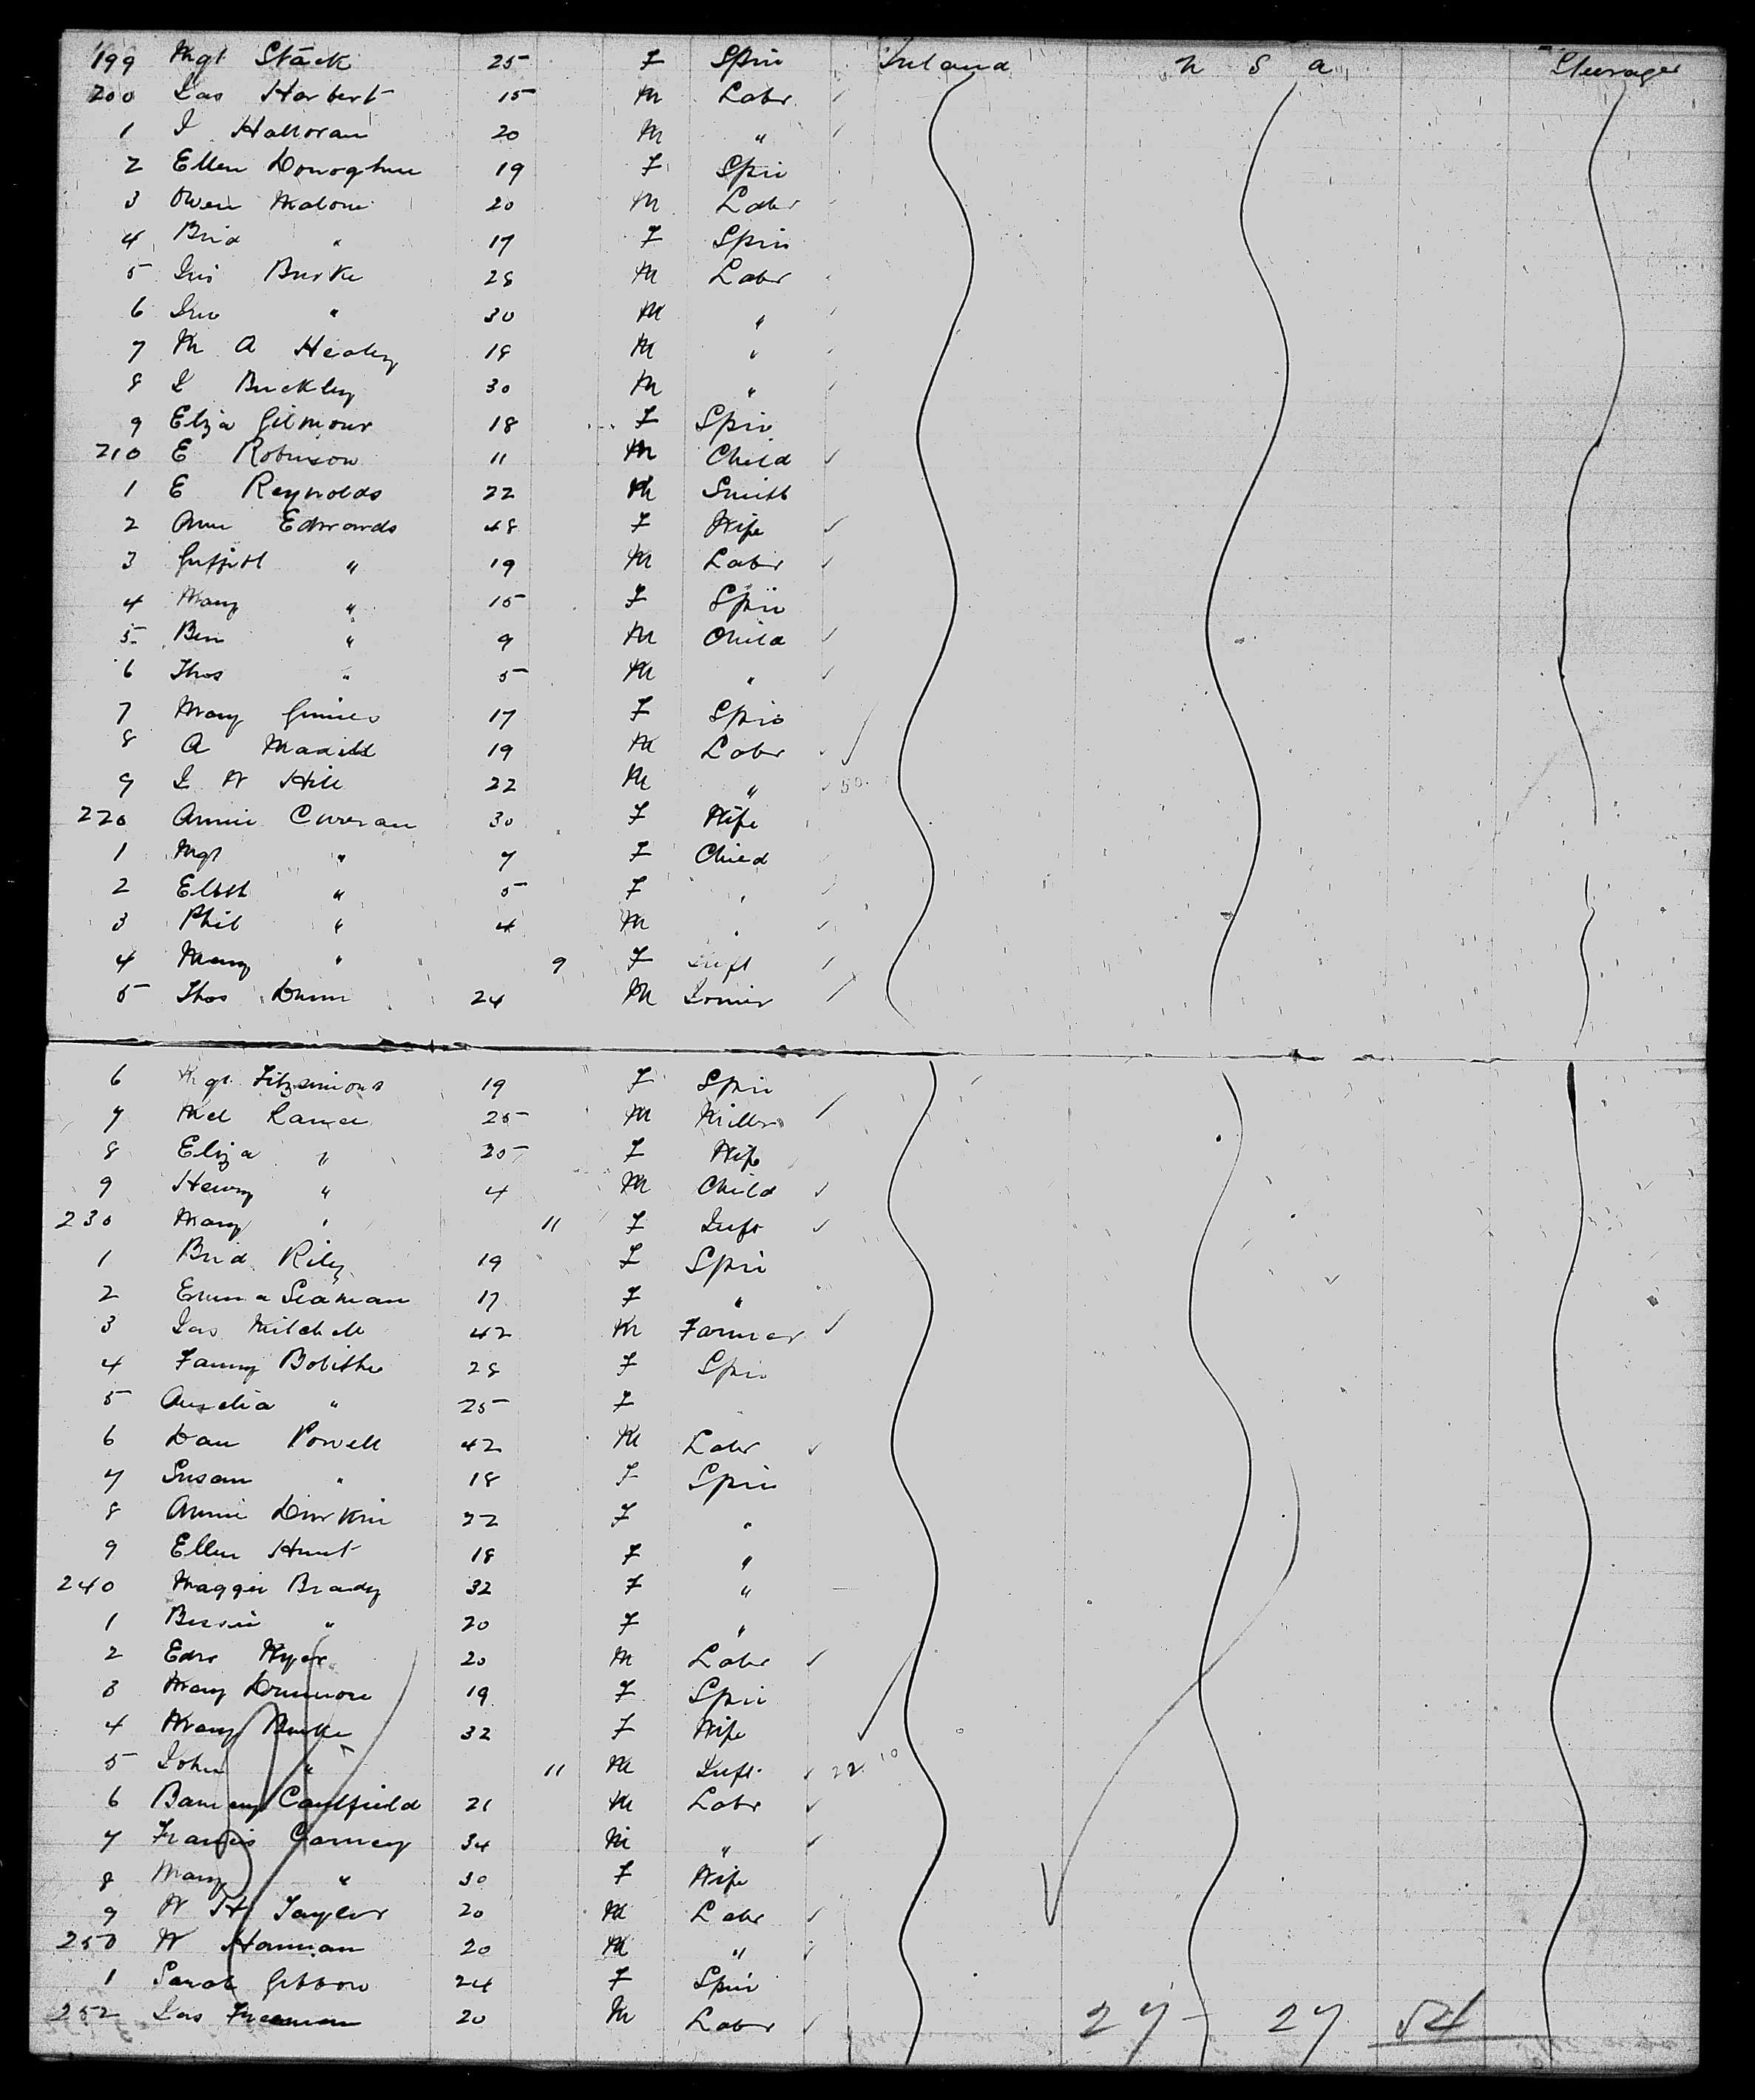 199 Mgt Stack 25 F Spin Ireland U S A Steerage
200 Jas Harbert 15 M Labr
1 J Halloran 20 M "
2 Ellen Donoghue 19 F Spin
3 Owen Malone 20 M Labr
4 Brid " 17 F Spin
5 Burke 28 M Labr
6 Jno " 30 M "
7 M A Healey 18 M "
8 J Buckley 30 M "
9 Eliza Gilmour 18 F Spin
210 E Robinson 11 M Child
1 E Reynolds 22 M Smith
2 Ann Edwards 48 F Wife
3 Griffith " 19 M Labr
4 Mary " 15 F Spin
5 Ben " 9 M Child
6 Thos " 5 M "
7 Mary 17 F Spin
8 A 19 M Labr
9 J W Hill 22 M " 50
220 Annie Curran 30 F Wife
1 Mgt " 7 F Child
2 Elbth " 5 F "
3 Phil " 4 M "
4 Mary " 9 F Inft
5 Thos Dunn 24 M Joiner
6 Mgt Fitzsimons 19 F Spin
7 Mcl 25 M Miller
8 Eliza " 25 F Wife
9 Henry " 4 M Child
230 Mary " 11 F Inft
1 Brid Riley 19 F Spin
2 Emma Seaman 17 F "
3 Jas Mitchell 42 M Farmer
4 Fanny 28 F Spin
5 Amelia " 25 F
6 Dan Powell 42 M Labr
7 Susan " 18 F Spin
8 Annie Durkin 22 F "
9 Ellen Hunt 18 F "
240 Maggie Brady 32 F "
1 Bessie " 20 F "
2 Edw 20 M Labr
3 Mary 19 F Spin
4 Mary Burke 32 F Wife
5 John " 11 M Inft 22 10
6 Caulfield 21 M Labr
7 Francis Garney 34 M "
8 Mary " 30 F Wife
9 W H Taylor 20 M Labr
250 W Hannan 20 M "
1 Sarah Gibbon 24 F Spin
252 Jas Freeman 20 M Labr
27 27 54